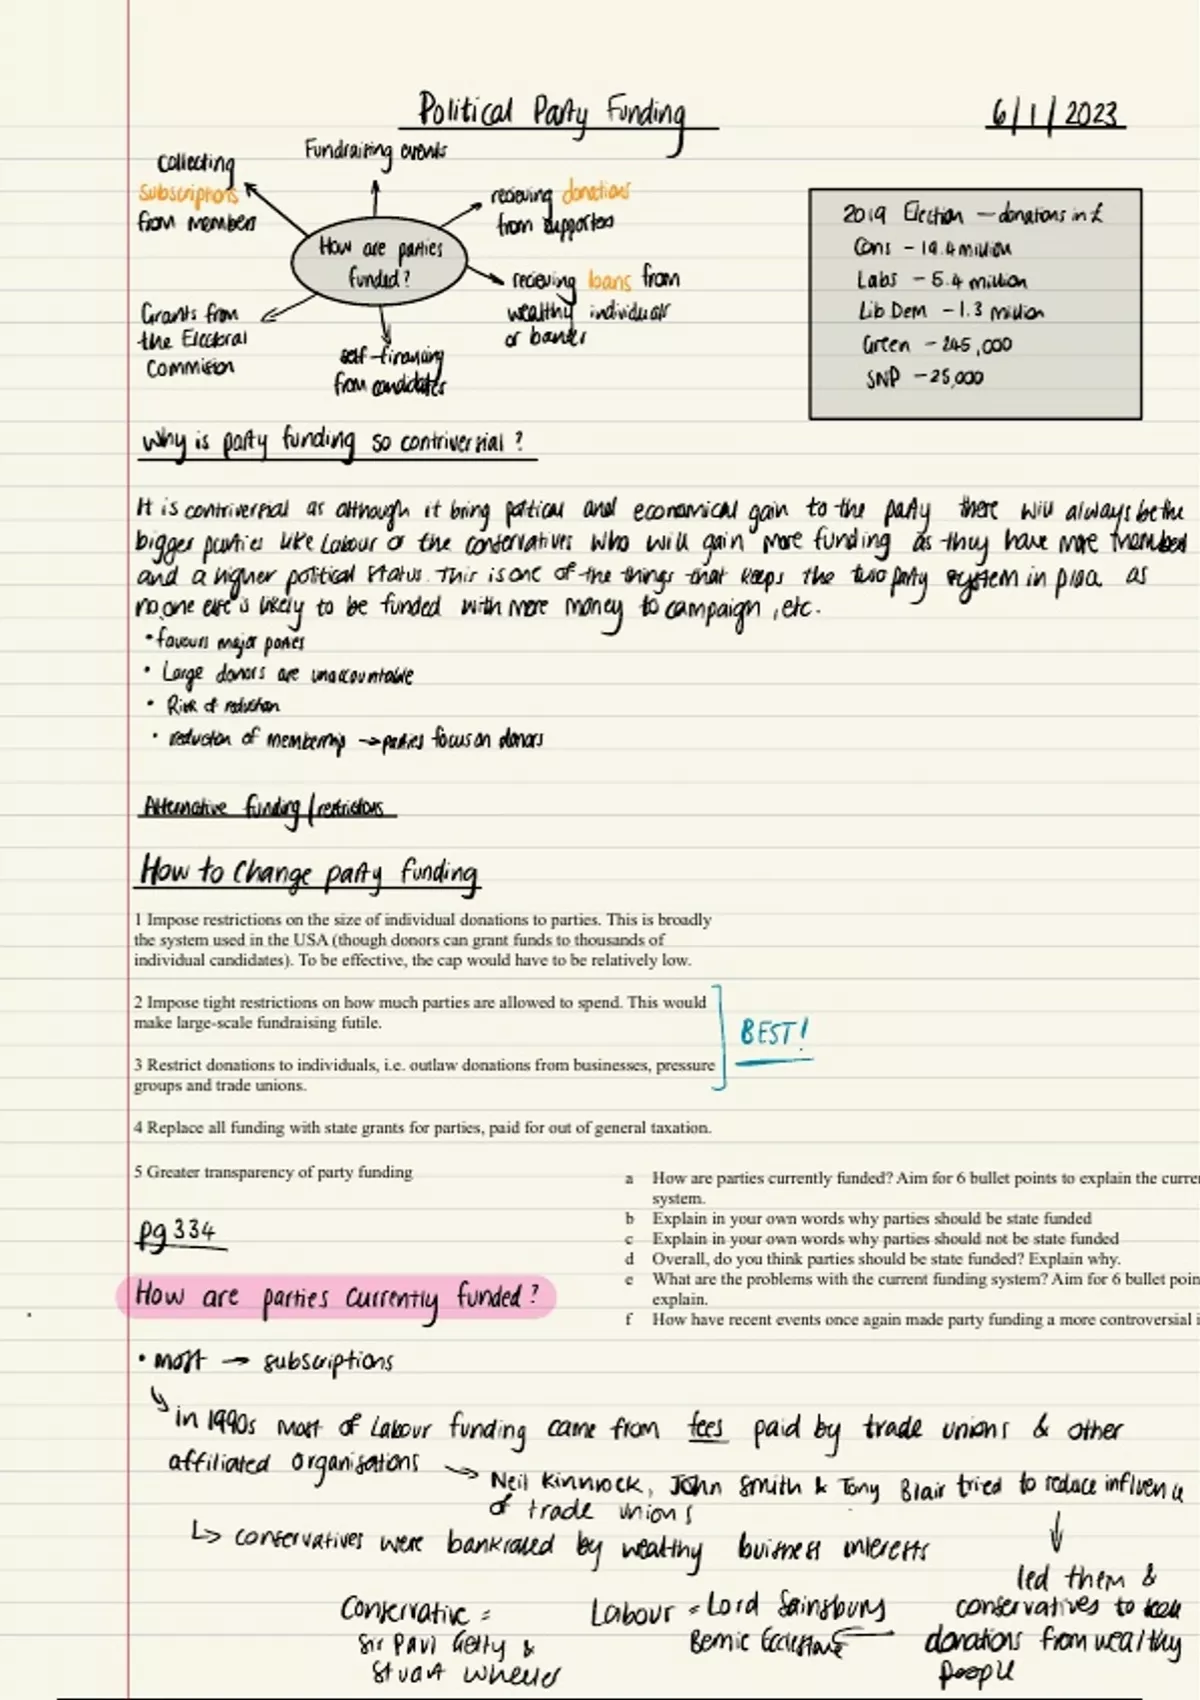 Political Party Funding
6/1/2023
Fundraising events
collecting
subscriptions
from members
recieving donations
from supporters
How are parties
funded?
recieving loans from
wealthy individuals
or banks
Grants from
the Electoral
Commision
self-financing
from candidates
2019 Election — donations in £
Cons - 19.4 million
Labs - 5.4 million
Lib Dem - 1.3 million
Green - 245,000
SNP - 25,000
Why is party funding so contriversial?
It is contriversial as although it bring political and economical gain to the party there will always be the
bigger parties like Labour or the conservatives who will gain more funding as they have more members
and a higher political status. This is one of the things that keeps the two party system in place as
no one else is likely to be funded with more money to campaign, etc.
• favours major parties
• Large donors are unaccountable
• Risk of reduction
• reduction of membership → parties focus on donors
Alternative funding / restrictions
How to Change party funding
1 Impose restrictions on the size of individual donations to parties. This is broadly
the system used in the USA (though donors can grant funds to thousands of
individual candidates). To be effective, the cap would have to be relatively low.
2 Impose tight restrictions on how much parties are allowed to spend. This would
make large-scale fundraising futile.
BEST!
3 Restrict donations to individuals, i.e. outlaw donations from businesses, pressure
groups and trade unions.
4 Replace all funding with state grants for parties, paid for out of general taxation.
5 Greater transparency of party funding
a How are parties currently funded? Aim for 6 bullet points to explain the curre
system.
b Explain in your own words why parties should be state funded
c Explain in your own words why parties should not be state funded
d Overall, do you think parties should be state funded? Explain why.
e What are the problems with the current funding system? Aim for 6 bullet poin
explain.
f How have recent events once again made party funding a more controversial i
pg 334
How are parties currently funded?
• most → subscriptions
in 1990s most of Labour funding came from fees paid by trade unions & other
affiliated organisations
→ Neil Kinnrock, John Smith & Tony Blair tried to reduce influence
of trade unions
↳ conservatives were bankraled by wealthy buisness interests
led them &
conservatives to seek
donations from wealthy
people
Conservative =
Sir Paul Getty &
Stuart Wheeler
Labour = Lord Sainsbury
Bernie Ecclestone